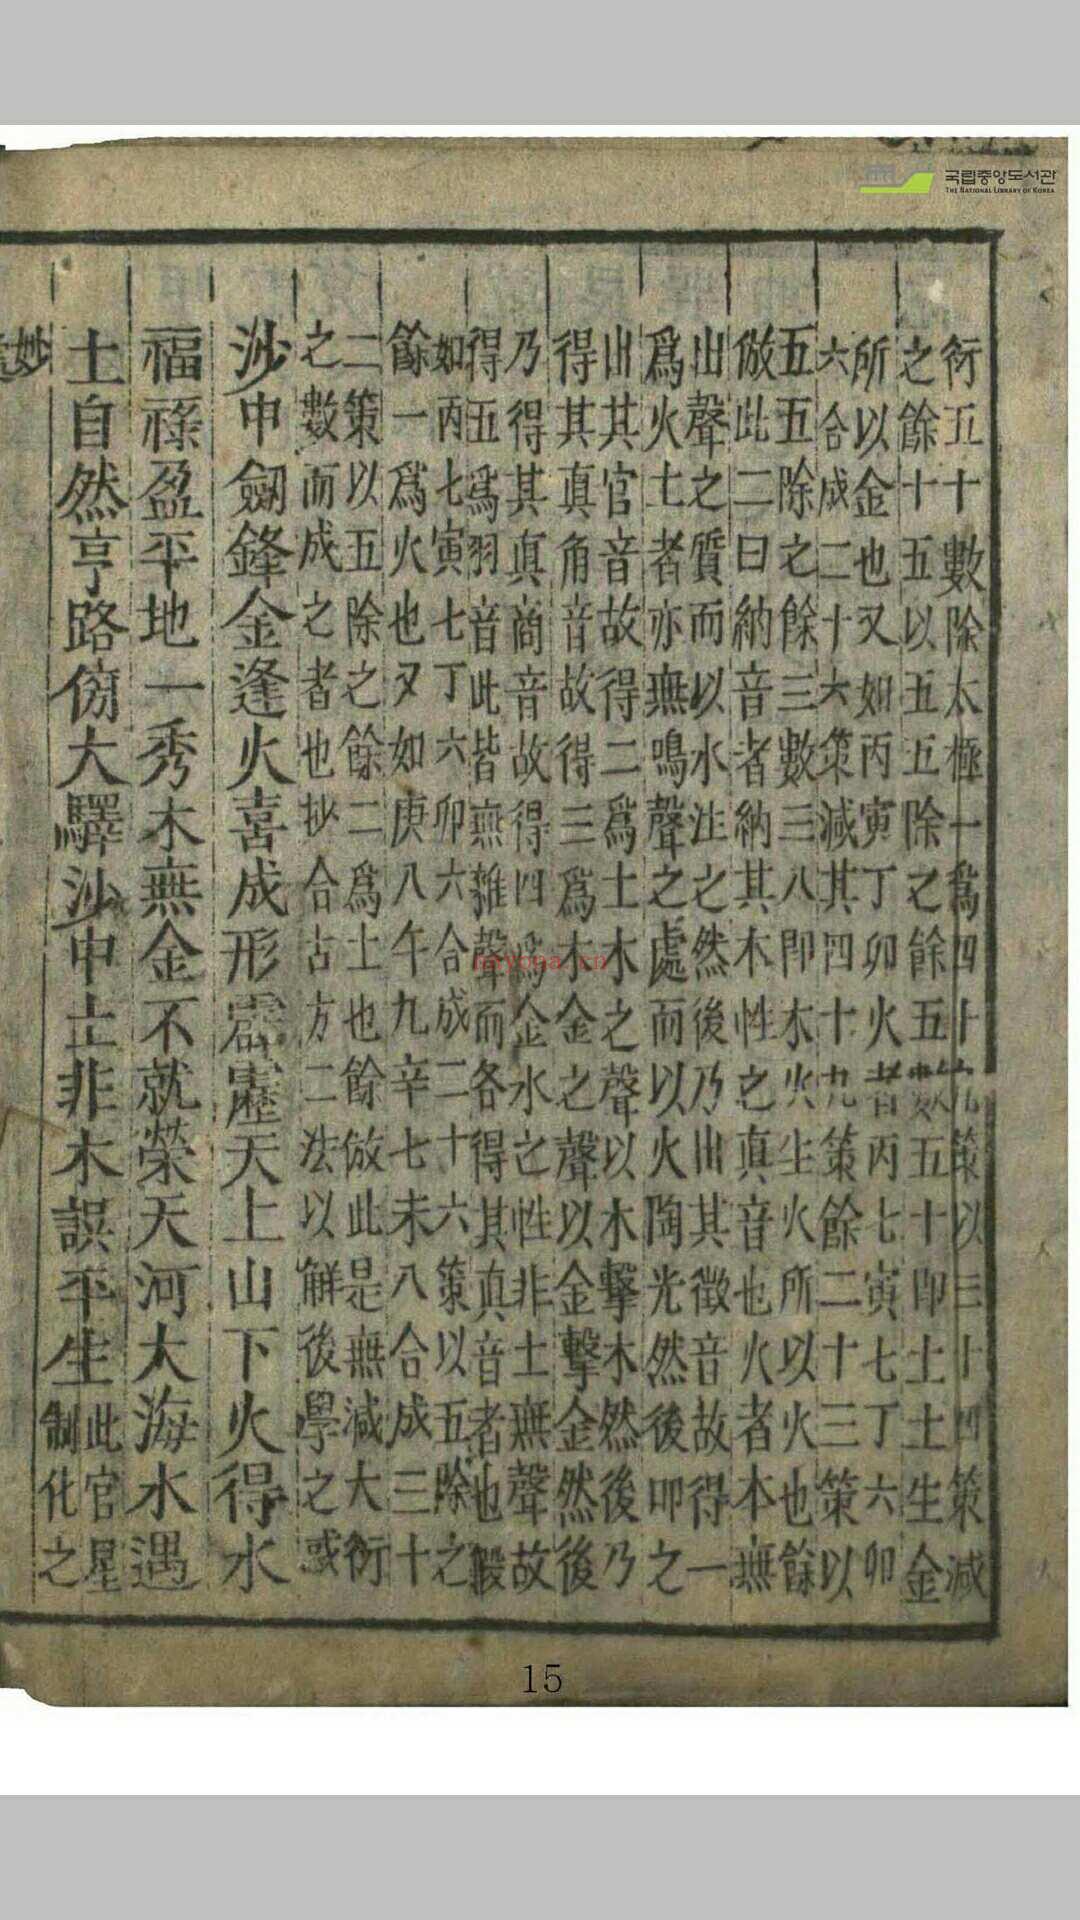 국립중앙도서관
THE NATIONAL LIBRARY OF KOREA
衍五十數除太極一爲四十九策以三十四策減
之餘十五以五五除之餘五數五十卽土土生金
所以金也又如丙寅丁卯火者丙七寅七丁六卯
六合成二十六策減其四十九策餘二十三策以
五五除之餘三數三八卽木火生火所以火也餘
倣此二曰納音者納其本性之真音也火者本無
出聲之質而以水注之然後乃出其徵音故得一
爲火土者亦無鳴聲之處而以火陶光然後叩之
出其宮音故得二爲土木之聲以木擊木然後乃
得其真角音故得三爲木金之聲以金擊金然後
乃得其真商音故得四爲金水之性非土無聲故
得五爲羽音此皆無雜聲而各得其真音者也假
如丙七寅七丁六卯六合成二十六策以五除之
餘一爲火也又如庚八午九辛七未八合成三十
二策以五除之餘二爲土也餘倣此是無減大衍
之數而成之者也抄合古方二法以解後學之惑
沙中劍鋒金逢火喜成形霹靂天上山下火得水
福祿盈平地一秀木無金不就榮天河大海水遇
土自然亨路傍大驛沙中土非木誤平生此官星
制化之
妙
myona.cn
15